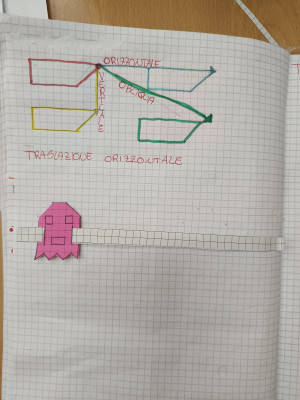 ORIZZONTALE
OBLIQUA
VERTICALE
TRASLAZIONE ORIZZONTALE